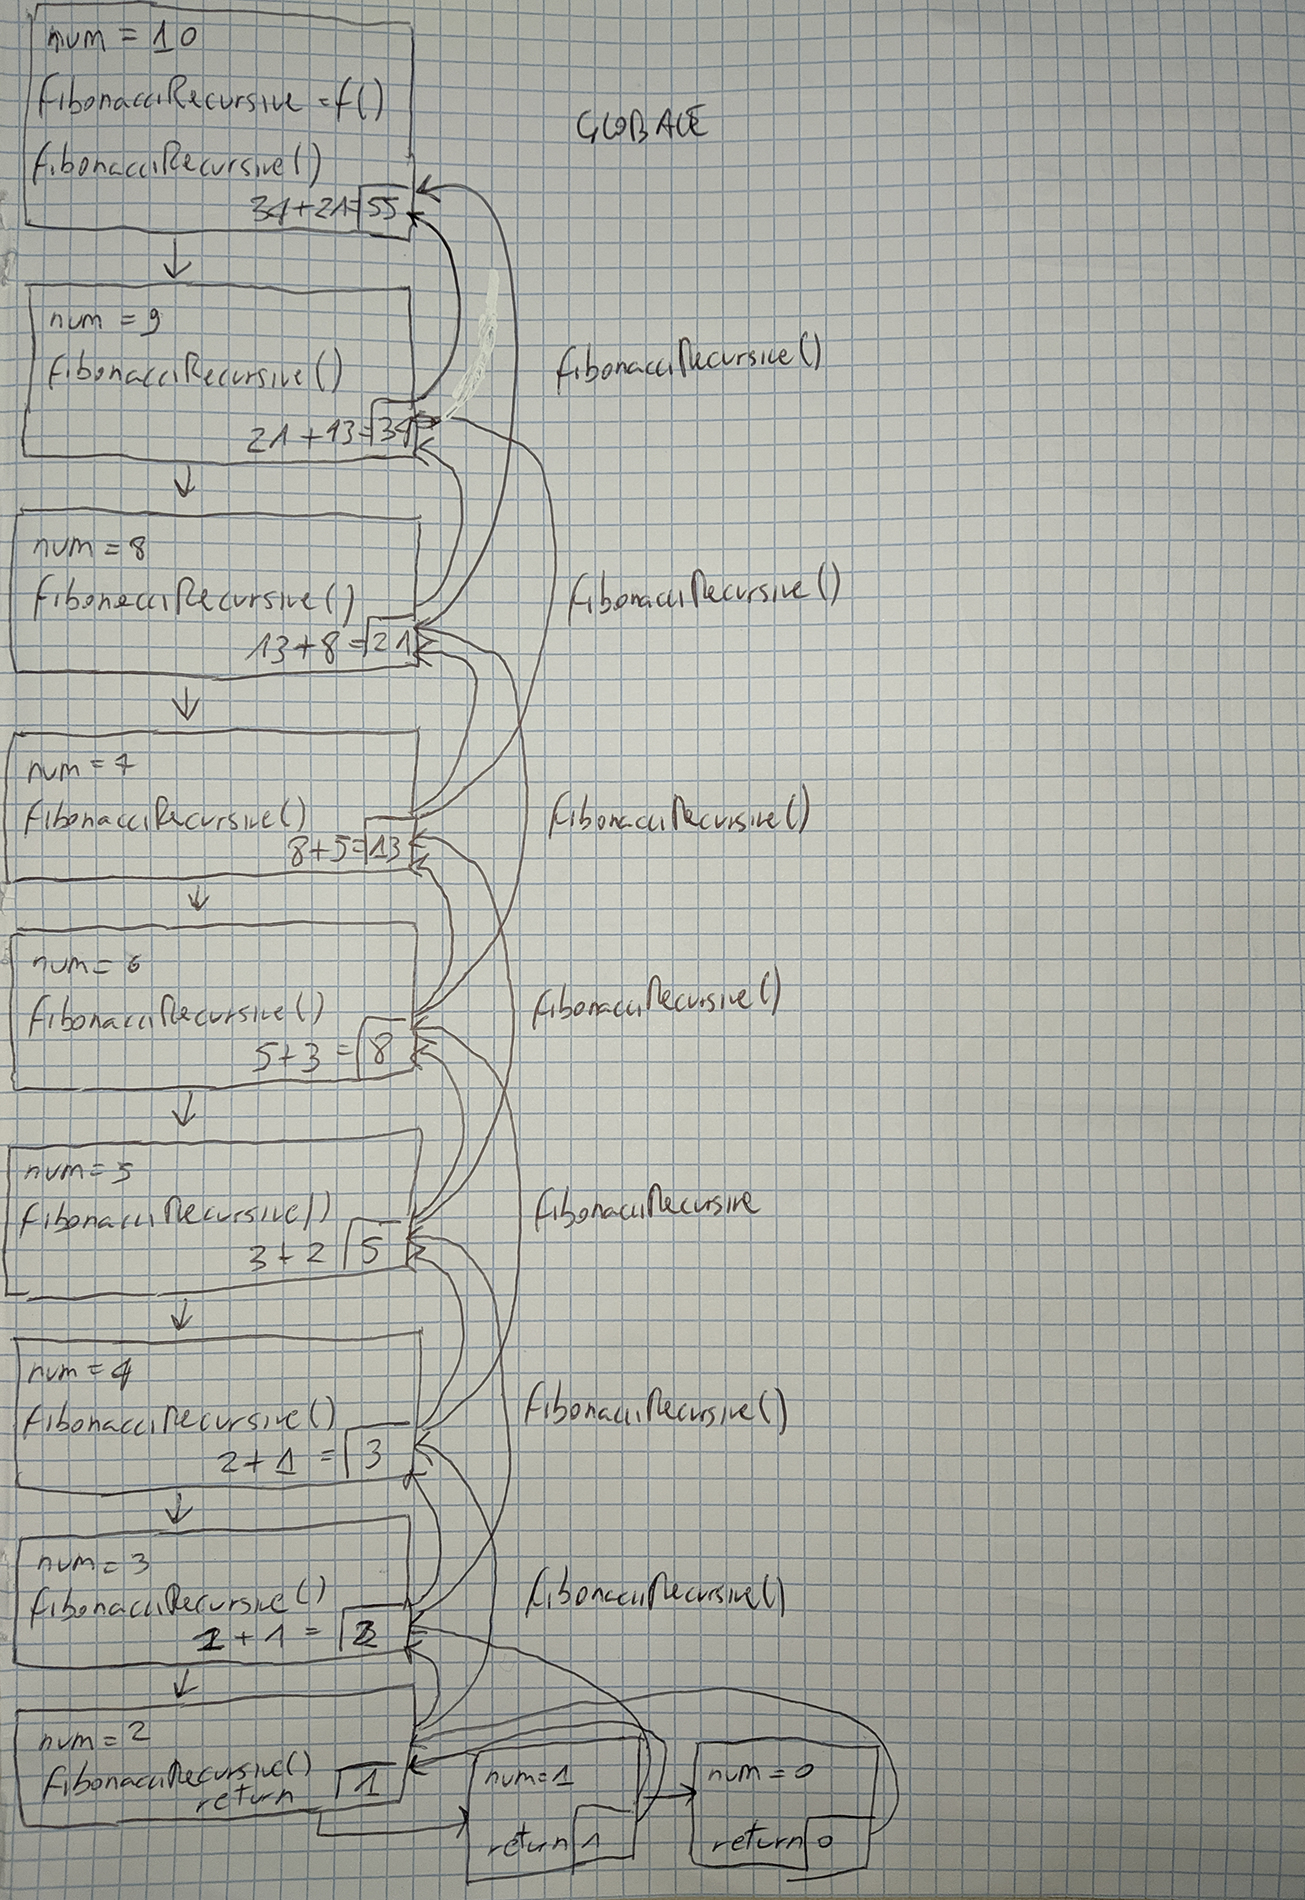 num = 10
fibonacciRecursive = f()
GLOBALE
fibonacciRecursive()
34+21=55
num = 9
fibonacciRecursive()
fibonacciRecursive()
21+13=34
num = 8
fibonacciRecursive()
fibonacciRecursive()
13+8=21
num = 7
fibonacciRecursive()
fibonacciRecursive()
8+5=13
num = 6
fibonacciRecursive()
fibonacciRecursive()
5+3=8
num = 5
fibonacciRecursive()
fibonacciRecursive
3+2 5
num = 4
fibonacciRecursive()
fibonacciRecursive()
2+1 = 3
num = 3
fibonacciRecursive()
fibonacciRecursive()
1+1 = 2
num = 2
fibonacciRecursive()
return 1
num=1
return 1
num = 0
return 0